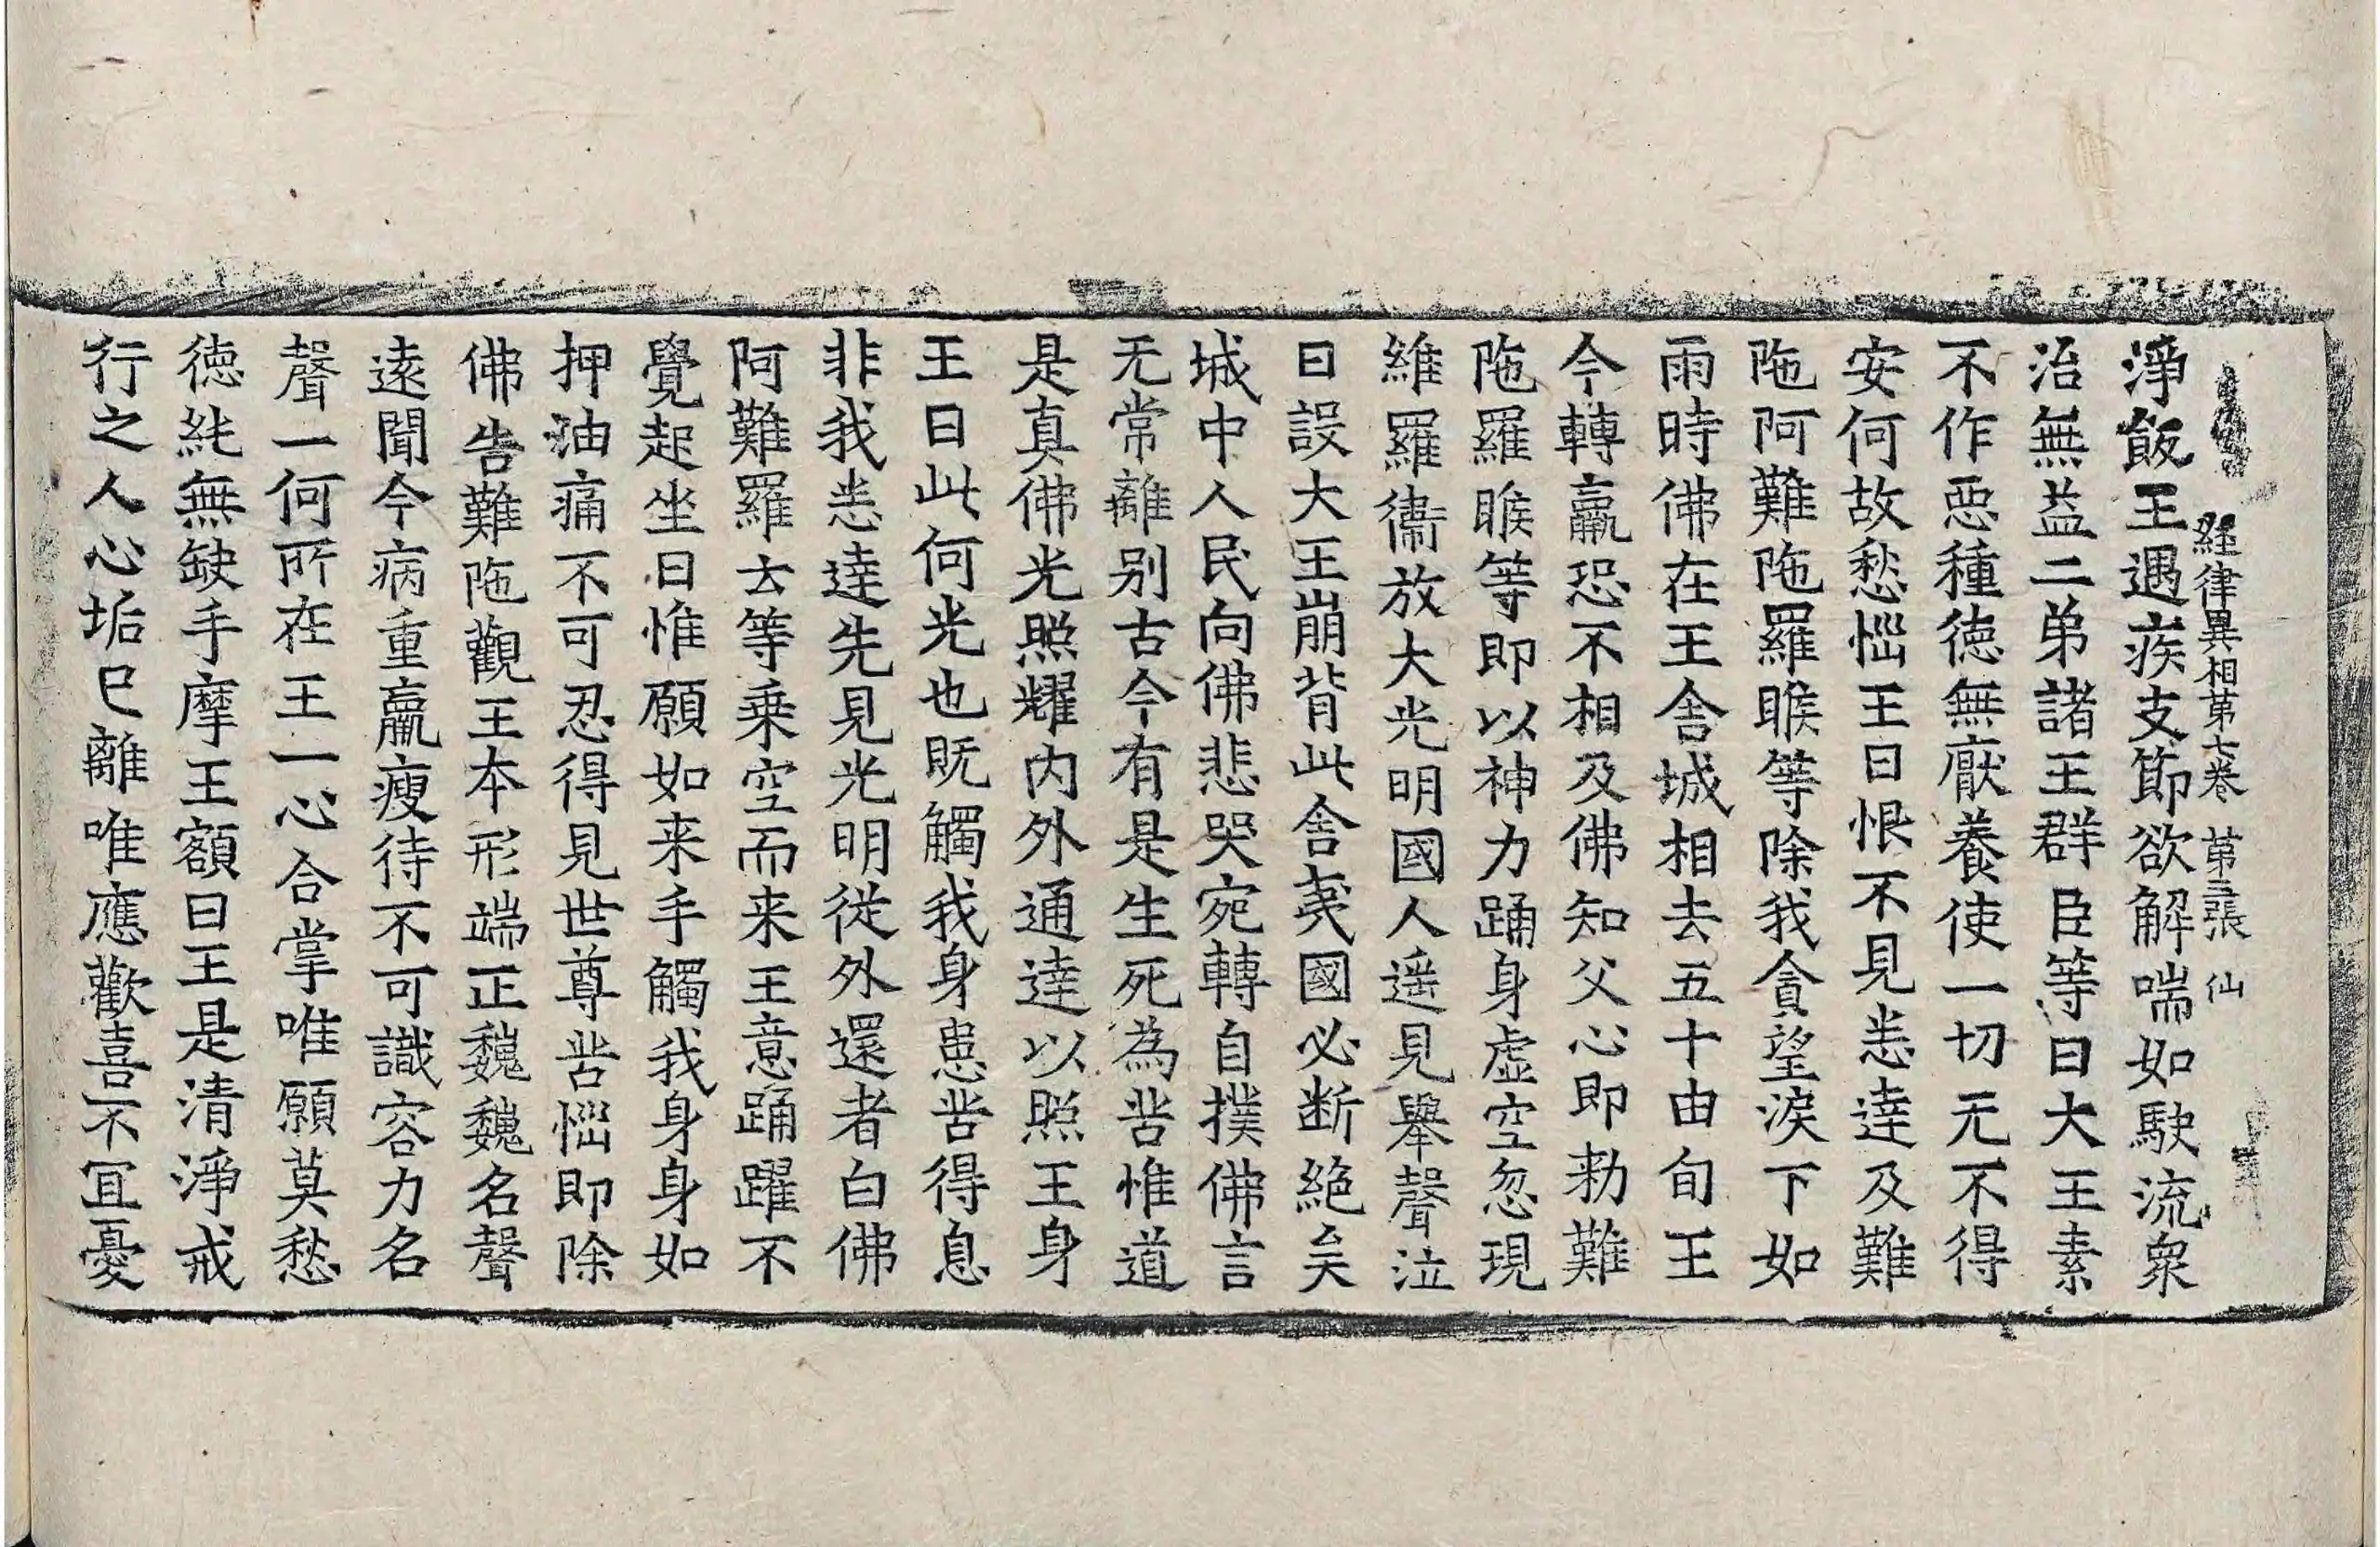 経律異相第七卷 第三張 仙
淨飯王遇疾支節欲解喘如駛流衆
治無益二弟諸王群臣等曰大王素
不作惡種徳無厭養使一切无不得
安何故愁惱王曰恨不見悉達及難
陁阿難陁羅睺等除我貪望淚下如
雨時佛在王舍城相去五十由旬王
今轉羸恐不相及佛知父心即勑難
陁羅睺等即以神力踊身虚空忽現
維羅衞放大光明國人遥見舉聲泣
曰設大王崩背此舍夷國必断絶矣
城中人民向佛悲哭宛轉自撲佛言
无常離别古今有是生死為苦惟道
是真佛光照耀内外通達以照王身
王曰此何光也既觸我身患苦得息
非我悉達先見光明從外還者白佛
阿難羅去等乗空而来王意踊躍不
覺起坐曰惟願如来手觸我身身如
押油痛不可忍得見世尊苦惱即除
佛告難陁觀王本形端正巍巍名聲
遠聞今病重羸瘦待不可識容力名
聲一何所在王一心合掌唯願莫愁
徳純無缺手摩王額曰王是清淨戒
行之人心垢已離唯應歡喜不宜憂